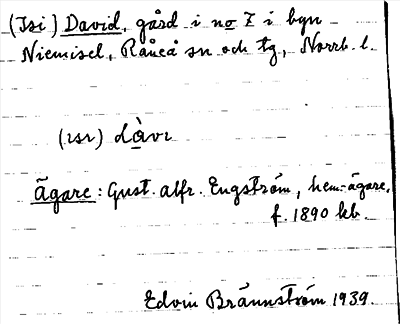 (Isi) David, gård i no 7 i byn
Niemisel, Råneå sn och tg, Norrb. l.
(ısı) dàvı
Ägare: Gust. Alfr. Engström, hem.-ägare,
f. 1890 hb.
Edvin Brännström 1939.